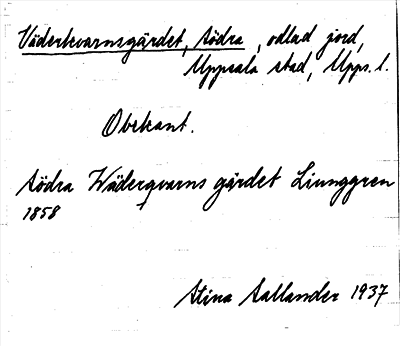 Väderkvarnsgärdet, Södra, odlad jord,
Uppsala stad, Upps. l.
Obekant.
Södra Wäderqvarns gärdet Liunggren
1858
Stina Sallander 1937